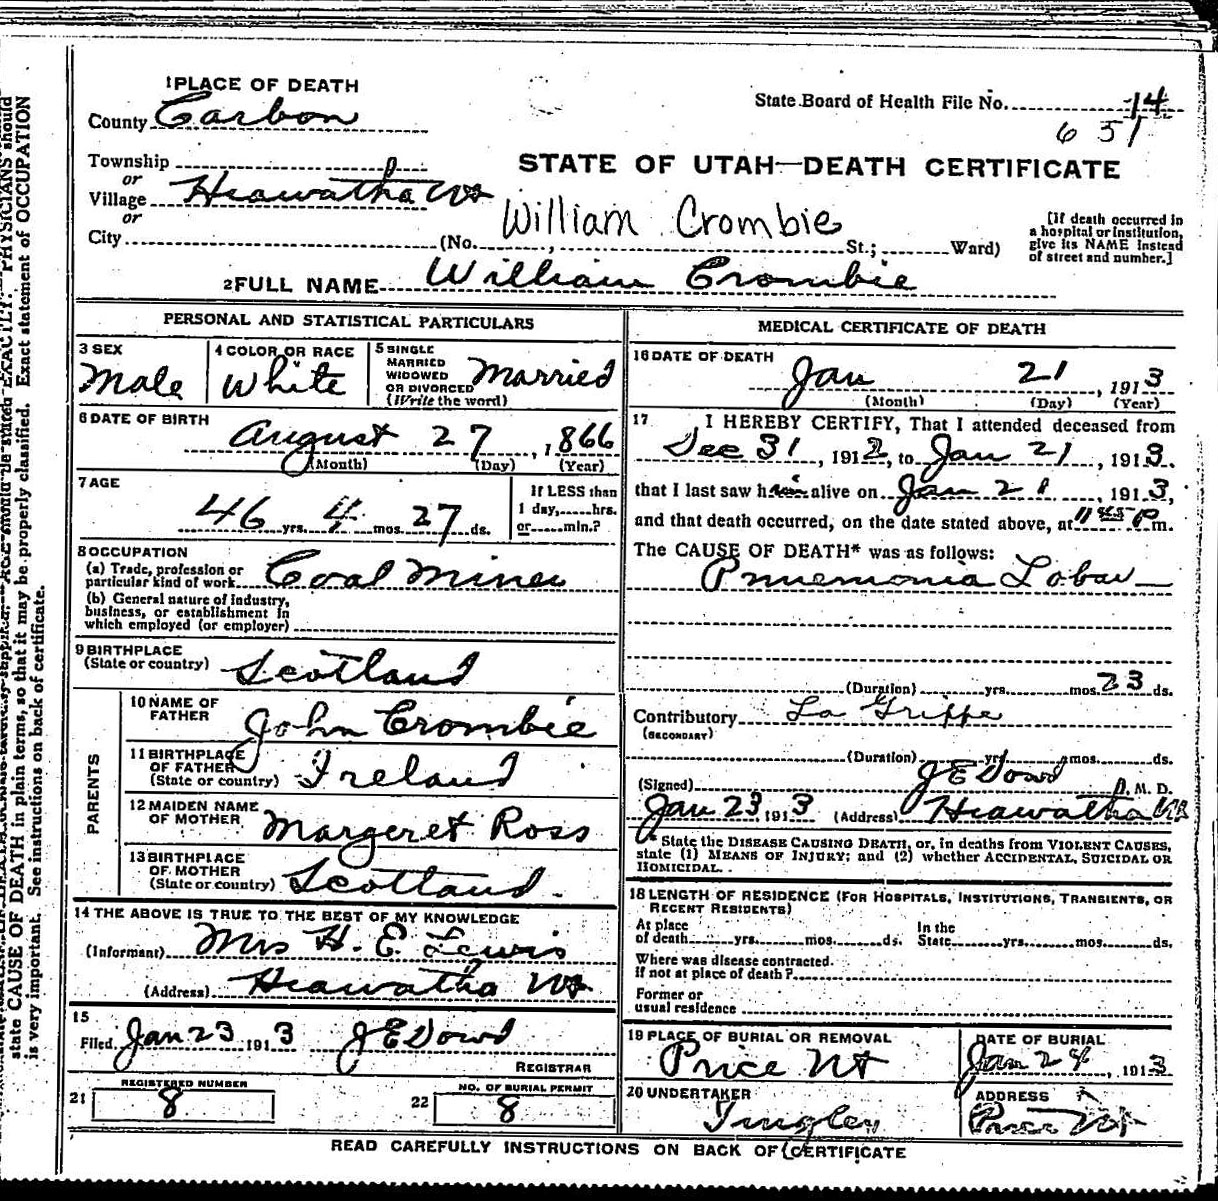 1 PLACE OF DEATH
County Carbon
State Board of Health File No. 14
651
Township
or
Village Hiawatha Ut
or
City (No. , St.; Ward)
STATE OF UTAH—DEATH CERTIFICATE
William Crombie
[If death occurred in
a hospital or institution,
give its NAME instead
of street and number.]
2 FULL NAME William Crombie
PERSONAL AND STATISTICAL PARTICULARS
3 SEX
Male
4 COLOR OR RACE
White
5 SINGLE
MARRIED
WIDOWED
OR DIVORCED
(Write the word)
Married
6 DATE OF BIRTH
August 27, 1866
(Month) (Day) (Year)
7 AGE
46 yrs. 4 mos. 27 ds.
If LESS than
1 day,.....hrs.
or.....min.?
8 OCCUPATION
(a) Trade, profession or
particular kind of work Coal Miner
(b) General nature of industry,
business, or establishment in
which employed (or employer)
9 BIRTHPLACE
(State or country) Scotland
PARENTS
10 NAME OF
FATHER John Crombie
11 BIRTHPLACE
OF FATHER
(State or country) Ireland
12 MAIDEN NAME
OF MOTHER Margeret Ross
13 BIRTHPLACE
OF MOTHER
(State or country) Scotland.
14 THE ABOVE IS TRUE TO THE BEST OF MY KNOWLEDGE
(Informant) Mrs H. E. Lewis
(Address) Hiawatha Ut
15
Filed Jan 23 1913 J E Dowd
REGISTRAR
21 REGISTERED NUMBER
8
22 NO. OF BURIAL PERMIT
8
MEDICAL CERTIFICATE OF DEATH
16 DATE OF DEATH
Jan 21, 1913
(Month) (Day) (Year)
17 I HEREBY CERTIFY, That I attended deceased from
Dec 31, 1912, to Jan 21, 1913.
that I last saw him alive on Jan 21, 1913,
and that death occurred, on the date stated above, at 11 45 P m.
The CAUSE OF DEATH* was as follows:
Pnuemonia Lobar
(Duration) yrs. mos. 23 ds.
Contributory La Grippe
(SECONDARY)
(Duration) yrs. mos. ds.
(Signed) J E Dowd, M. D.
Jan 23, 1913 (Address) Hiawatha Ut
* State the DISEASE CAUSING DEATH, or, in deaths from VIOLENT CAUSES,
state (1) MEANS OF INJURY; and (2) whether ACCIDENTAL, SUICIDAL OR
HOMICIDAL.
18 LENGTH OF RESIDENCE (FOR HOSPITALS, INSTITUTIONS, TRANSIENTS, OR
RECENT RESIDENTS)
At place
of death yrs. mos. ds.
In the
State yrs. mos. ds.
Where was disease contracted.
if not at place of death?
Former or
usual residence
19 PLACE OF BURIAL OR REMOVAL
Price Ut
DATE OF BURIAL
Jan 24, 1913
20 UNDERTAKER
Tingley
ADDRESS
Price Ut
READ CAREFULLY INSTRUCTIONS ON BACK OF CERTIFICATE
PHYSICIANS should
state CAUSE OF DEATH in plain terms, so that it may be properly classified. Exact statement of OCCUPATION
is very important. See instructions on back of certificate.